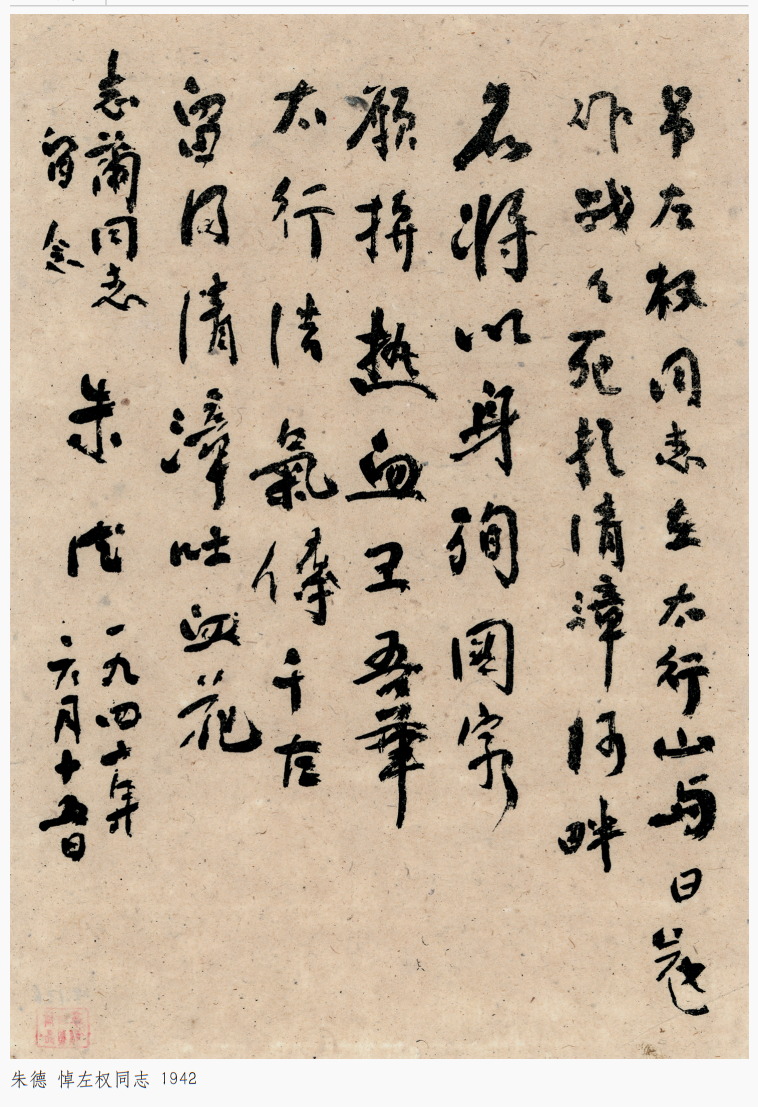 吊左权同志在太行山与日寇
作战々死於清漳河畔
名将以身殉國家
願拚热血卫吾華
太行浩氣傳千古
留得清漳吐血花
志蘭同志
留念
朱德
一九四二年
六月十五日
朱德 悼左权同志 1942